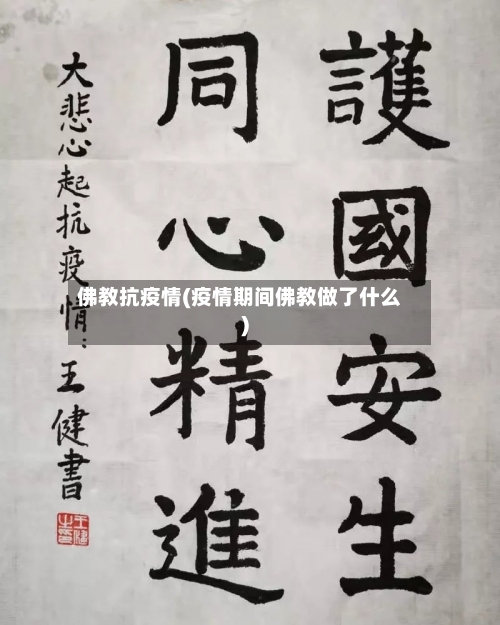 護國安生
同心精進
大悲心起抗疫情:王健書
王健之書
佛教抗疫情(疫情期间佛教做了什么
)